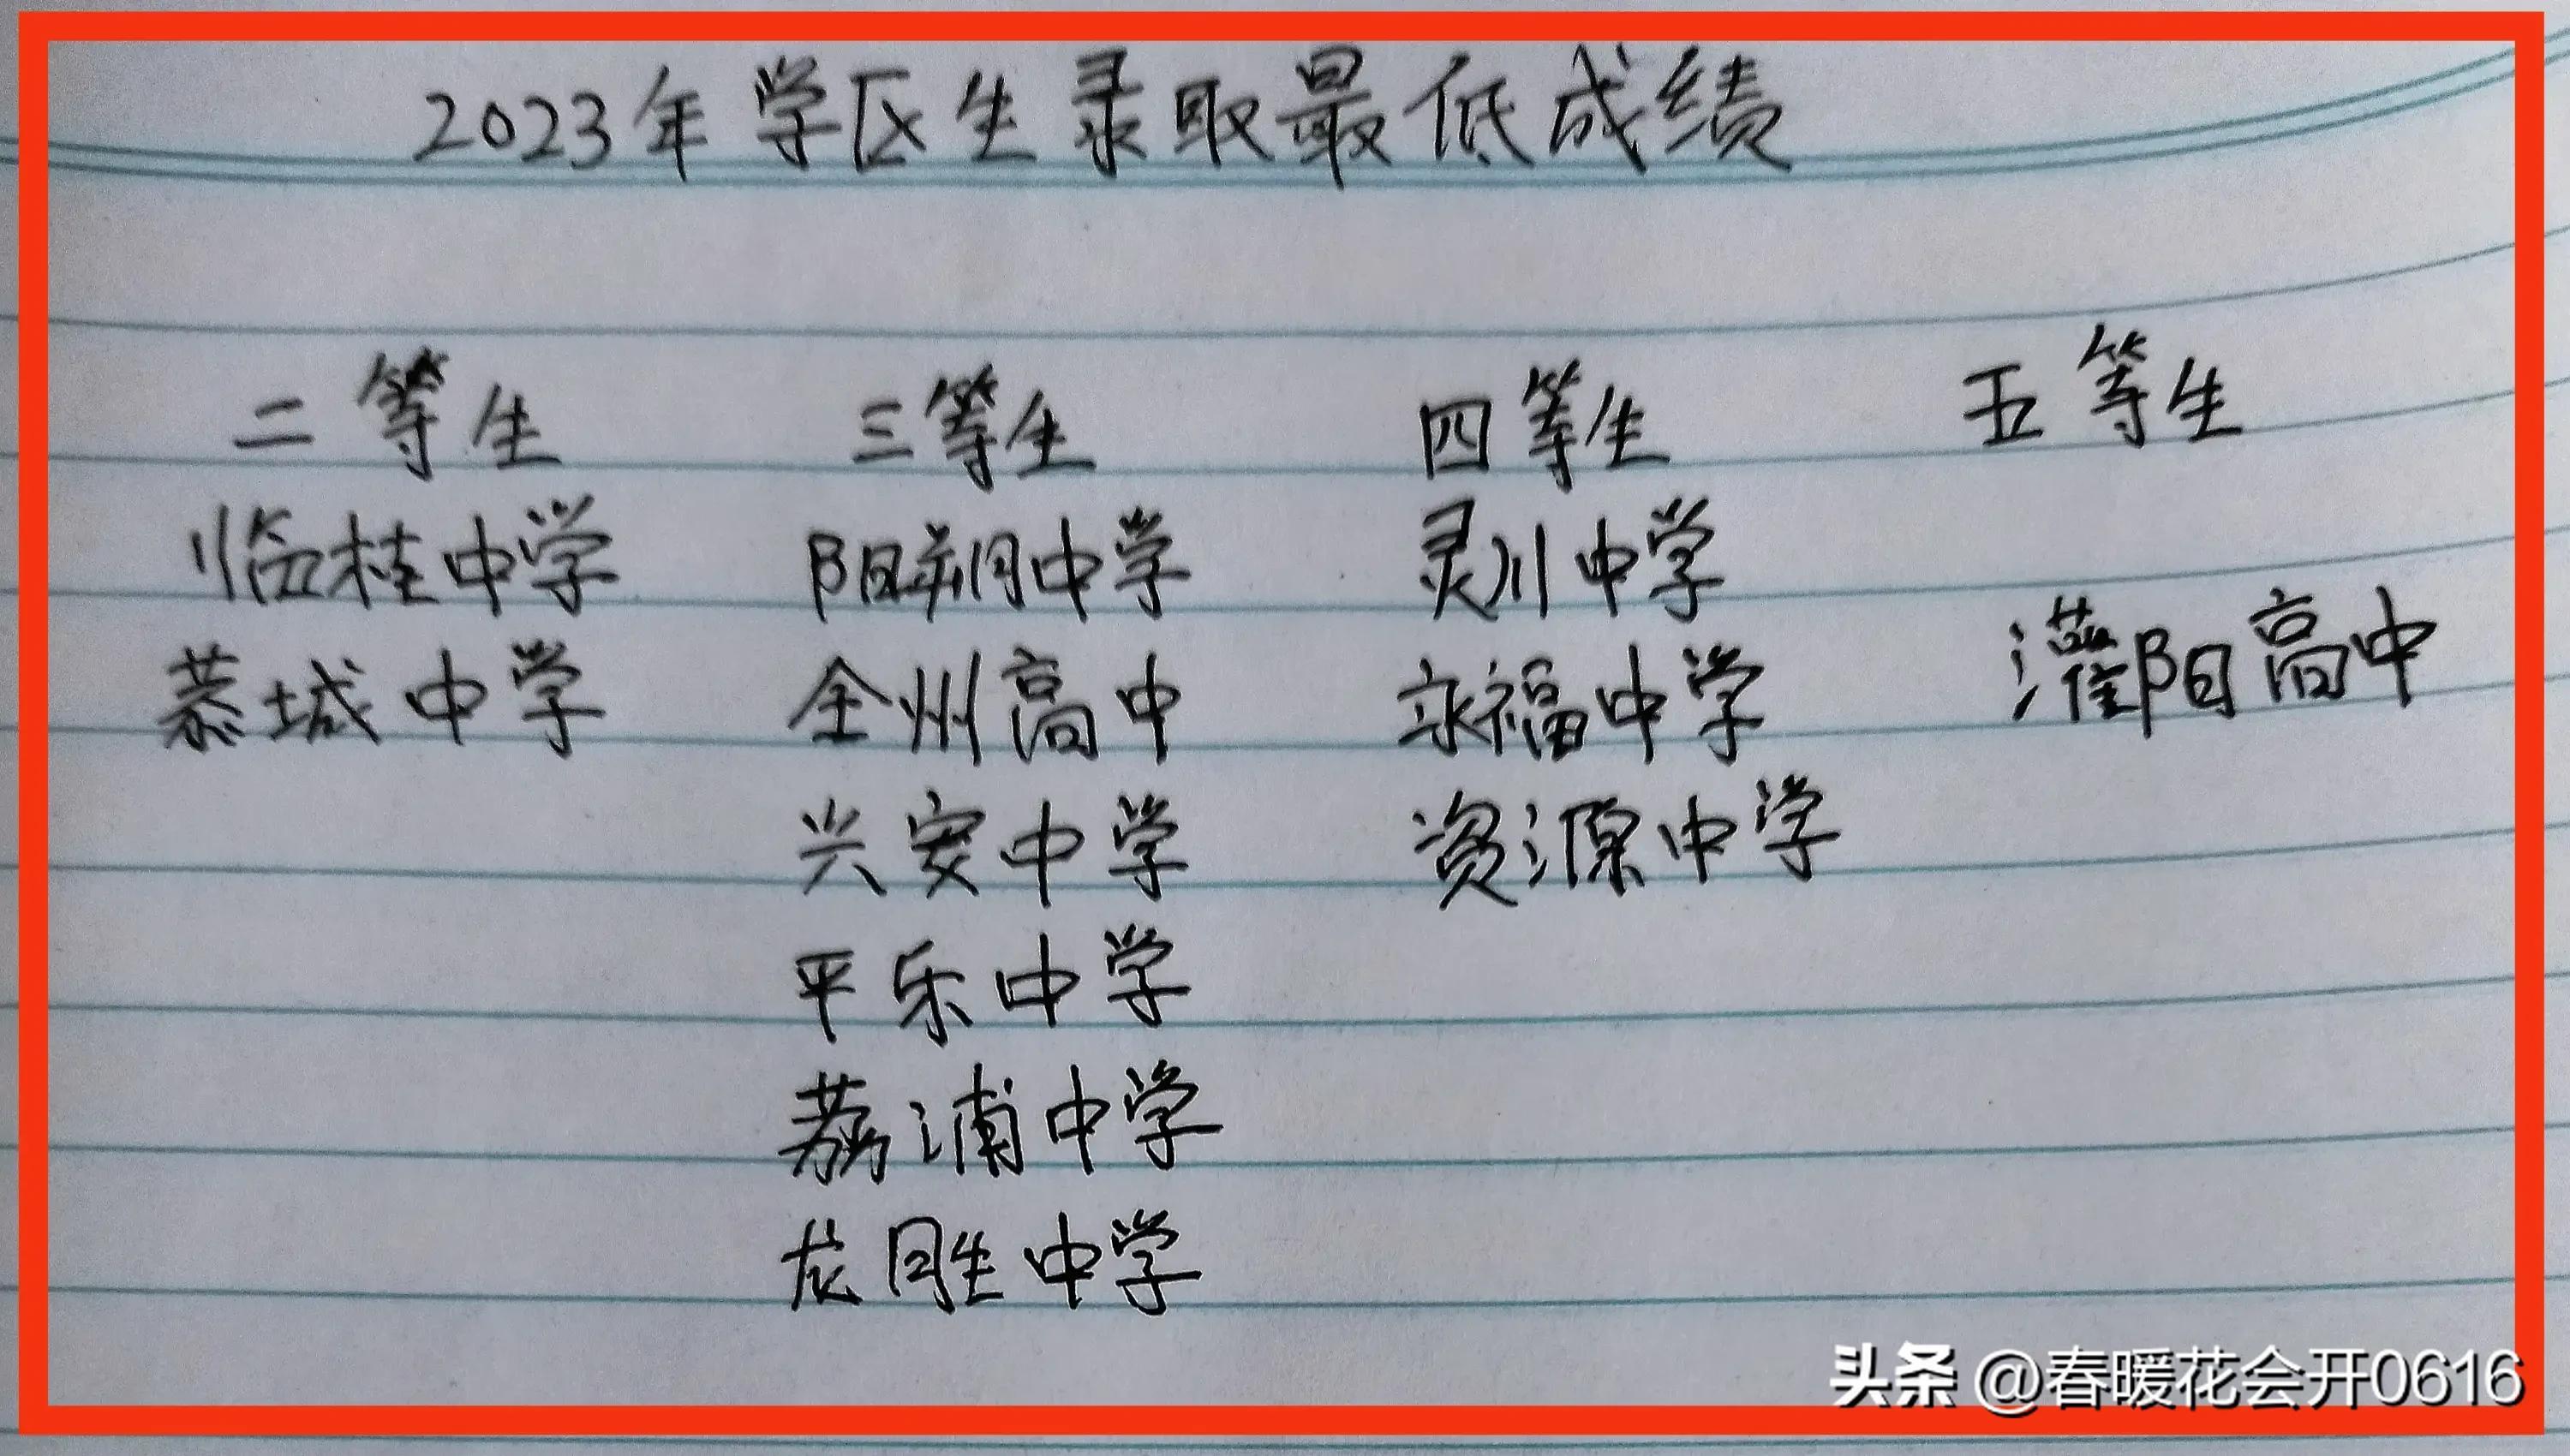 2023年学区生录取最低成绩
二等生 三等生 四等生 五等生
临桂中学 阳朔中学 灵川中学
恭城中学 全州高中 永福中学 灌阳高中
兴安中学 资源中学
平乐中学
荔浦中学
龙胜中学
头条 @春暖花会开0616